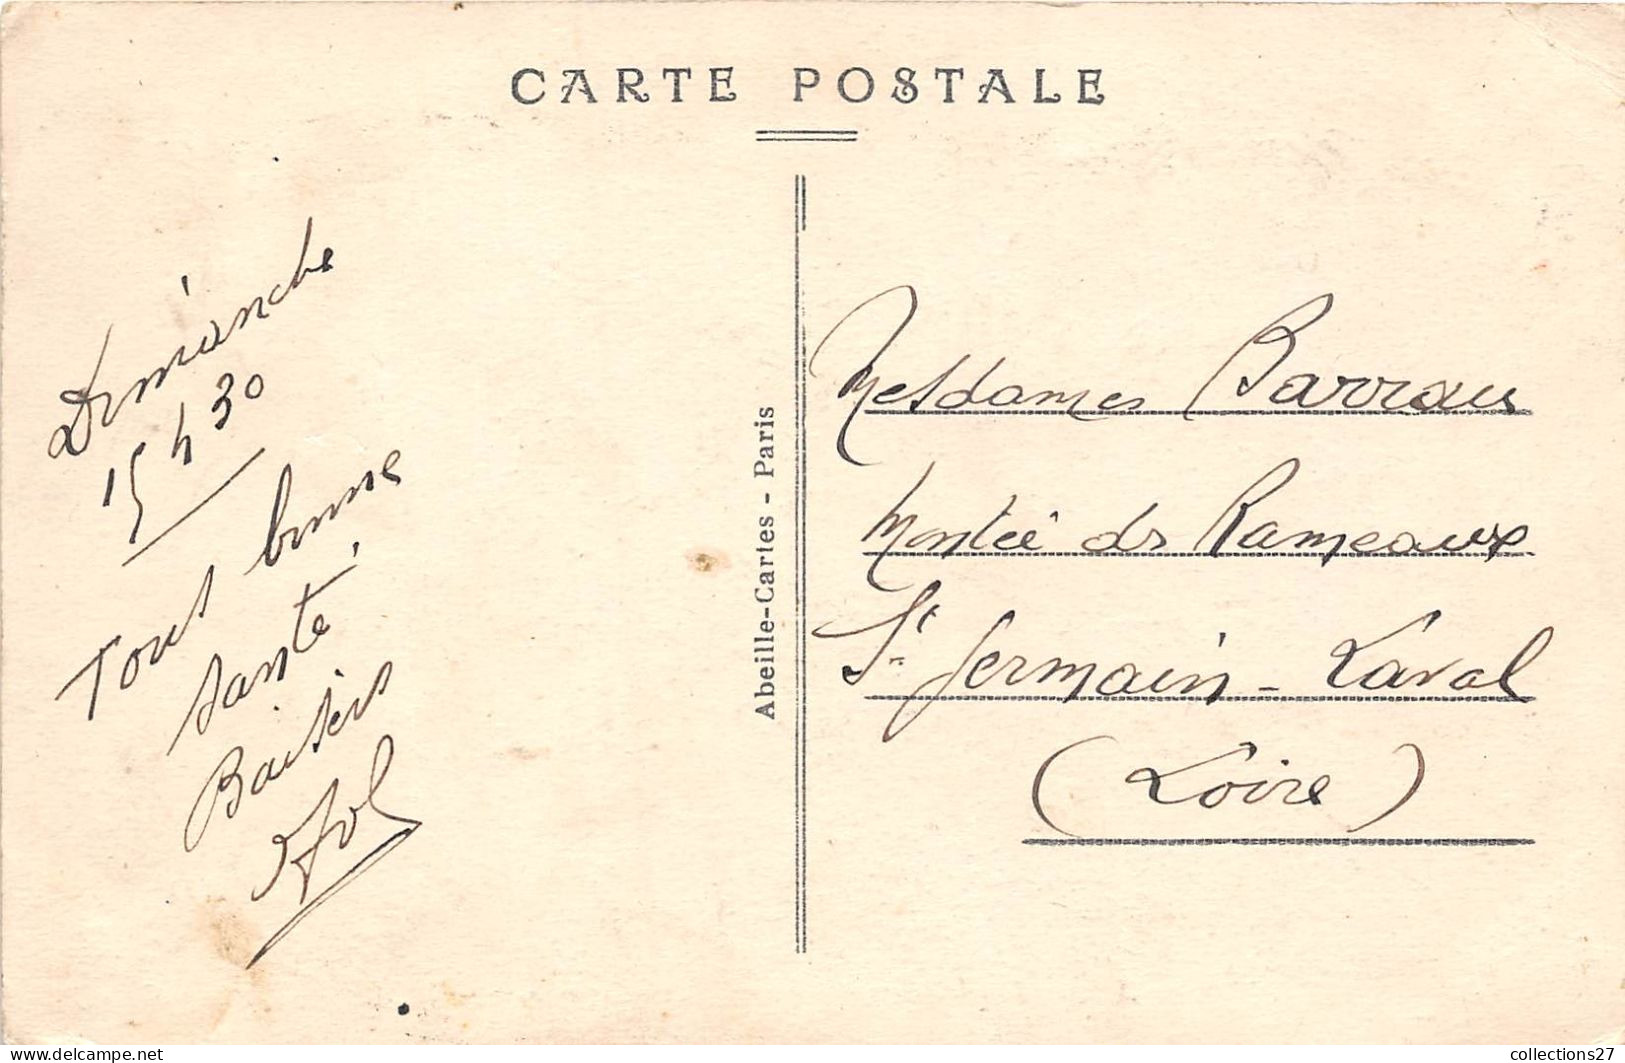 CARTE POSTALE
Dimanche
15 h 30
Tous bonne
santé
Baisers
Abeille-Cartes - Paris
Mesdames Barraus
Montée des Rameaux
St Germain - Laval
(Loire)
collections27